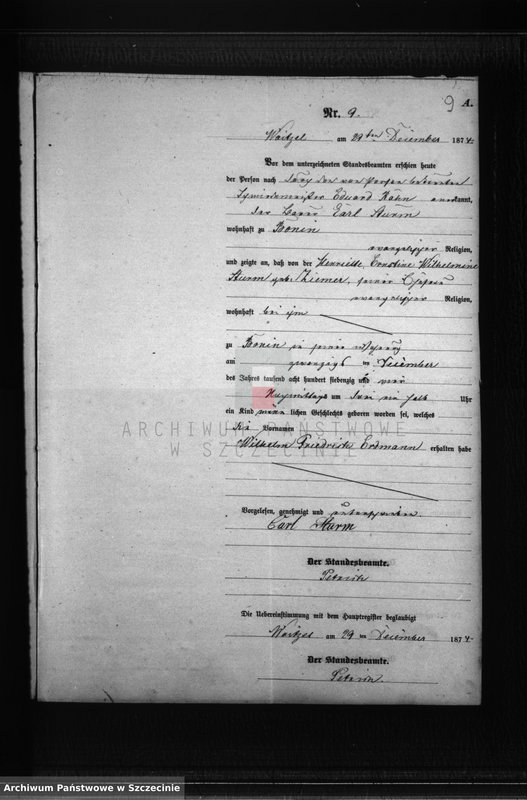 9 A.
Nr. 9.
Woitzel am 29ten December 1874
Vor dem unterzeichneten Standesbeamten erschien heute
der Person nach durch den von Person bekannten
Schmiedemeister Eduard Kahn anerkannt,
der Bauer Carl Sturm
wohnhaft zu Bonin
evangelischer Religion,
und zeigte an, daß von der Henriette Ernstine Wilhelmine
Sturm geb. Ziemer, seiner Ehefrau
evangelischer Religion,
wohnhaft bei ihm
zu Bonin in seiner Wohnung
am zwanzigsten December
des Jahres tausend acht hundert siebenzig und vier
Nachmittags um drei ein halb Uhr
ein Kind männlichen Geschlechts geboren worden sei, welches
die Vornamen
Wilhelm Friedrich Erdmann erhalten habe
ARCHIWUM PAŃSTWOWE
W SZCZECINIE
Vorgelesen, genehmigt und unterschrieben.
Carl Sturm
Der Standesbeamte.
Die Uebereinstimmung mit dem Hauptregister beglaubigt
Woitzel am 29 ten December 1874
Der Standesbeamte.
Archiwum Państwowe w Szczecinie